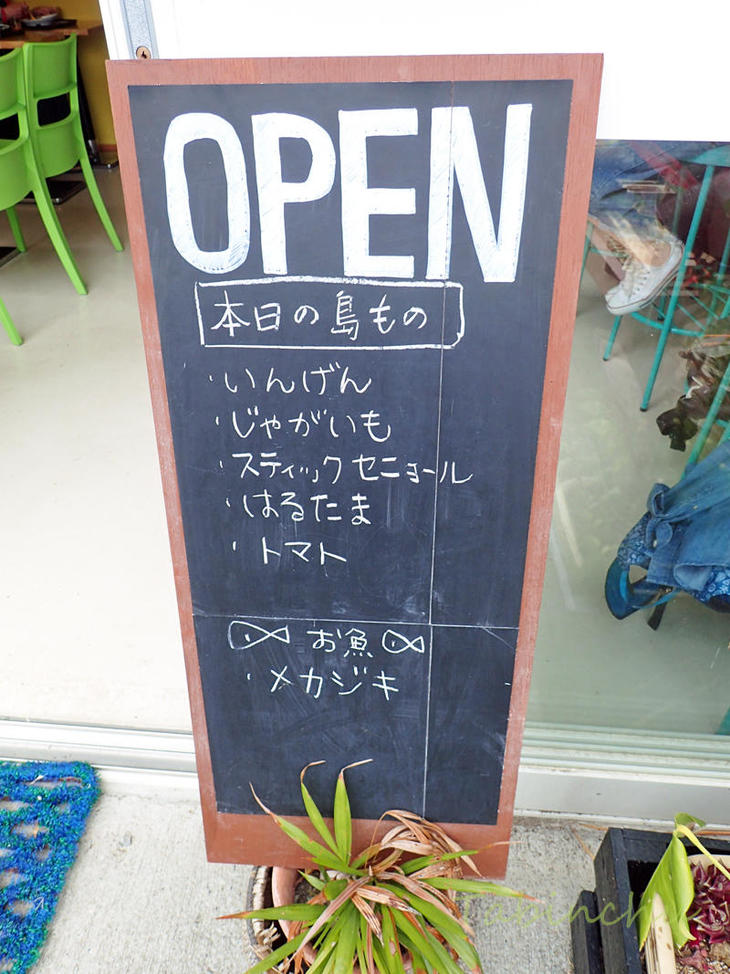 OPEN
本日の島もの
・いんげん
・じゃがいも
・スティックセニョール
・はるたま
・トマト
お魚
・メカジキ